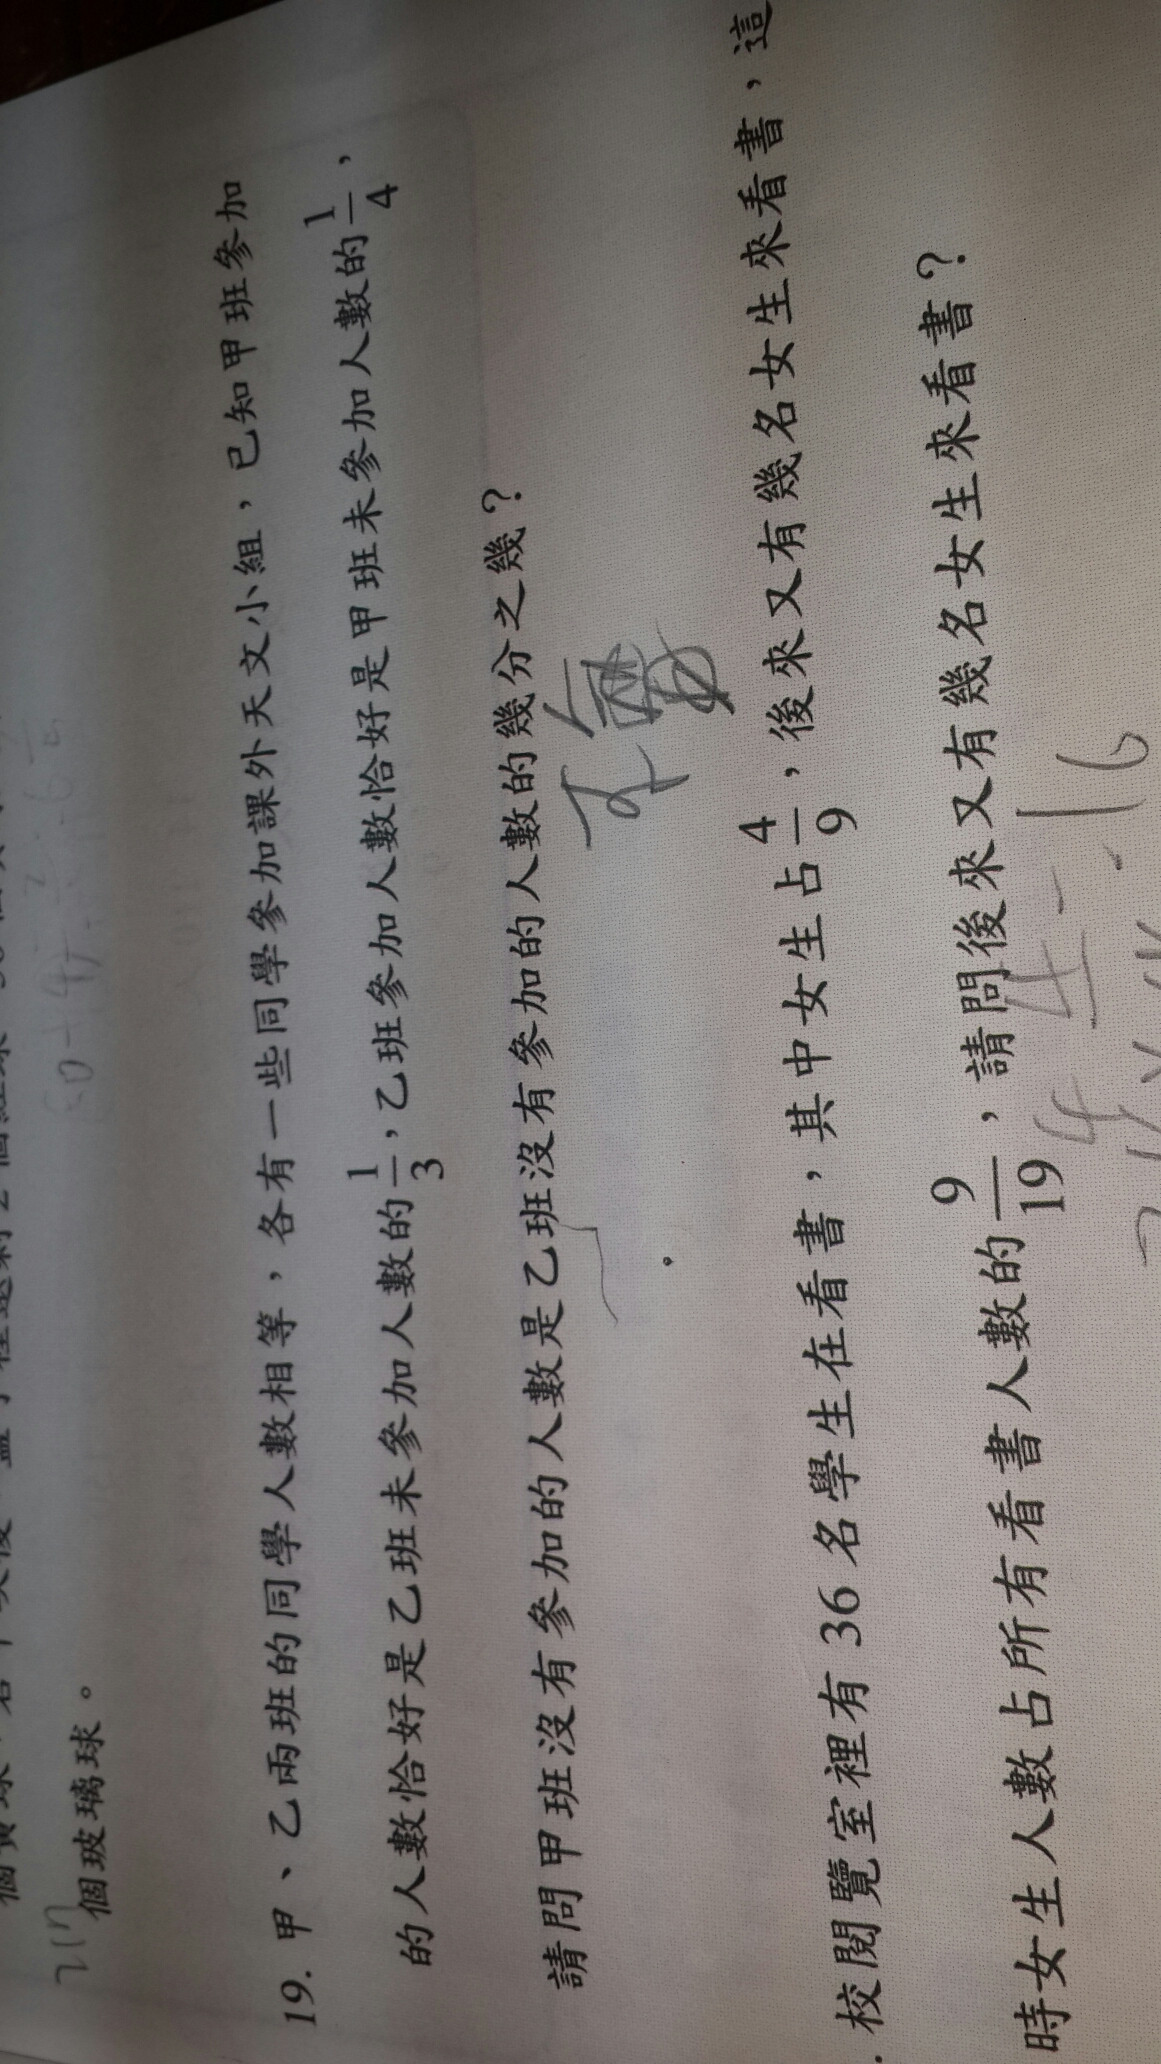 個玻璃球。
19. 甲、乙兩班的同學人數相等，各有一些同學參加課外天文小組，已知甲班參加
的人數恰好是乙班未參加人數的1/3，乙班參加人數恰好是甲班未參加人數的1/4，
請問甲班沒有參加的人數是乙班沒有參加的人數的幾分之幾？
. 校閱覽室裡有 36 名學生在看書，其中女生占4/9，後來又有幾名女生來看書，這
時女生人數占所有看書人數的9/19，請問後來又有幾名女生來看書？
16